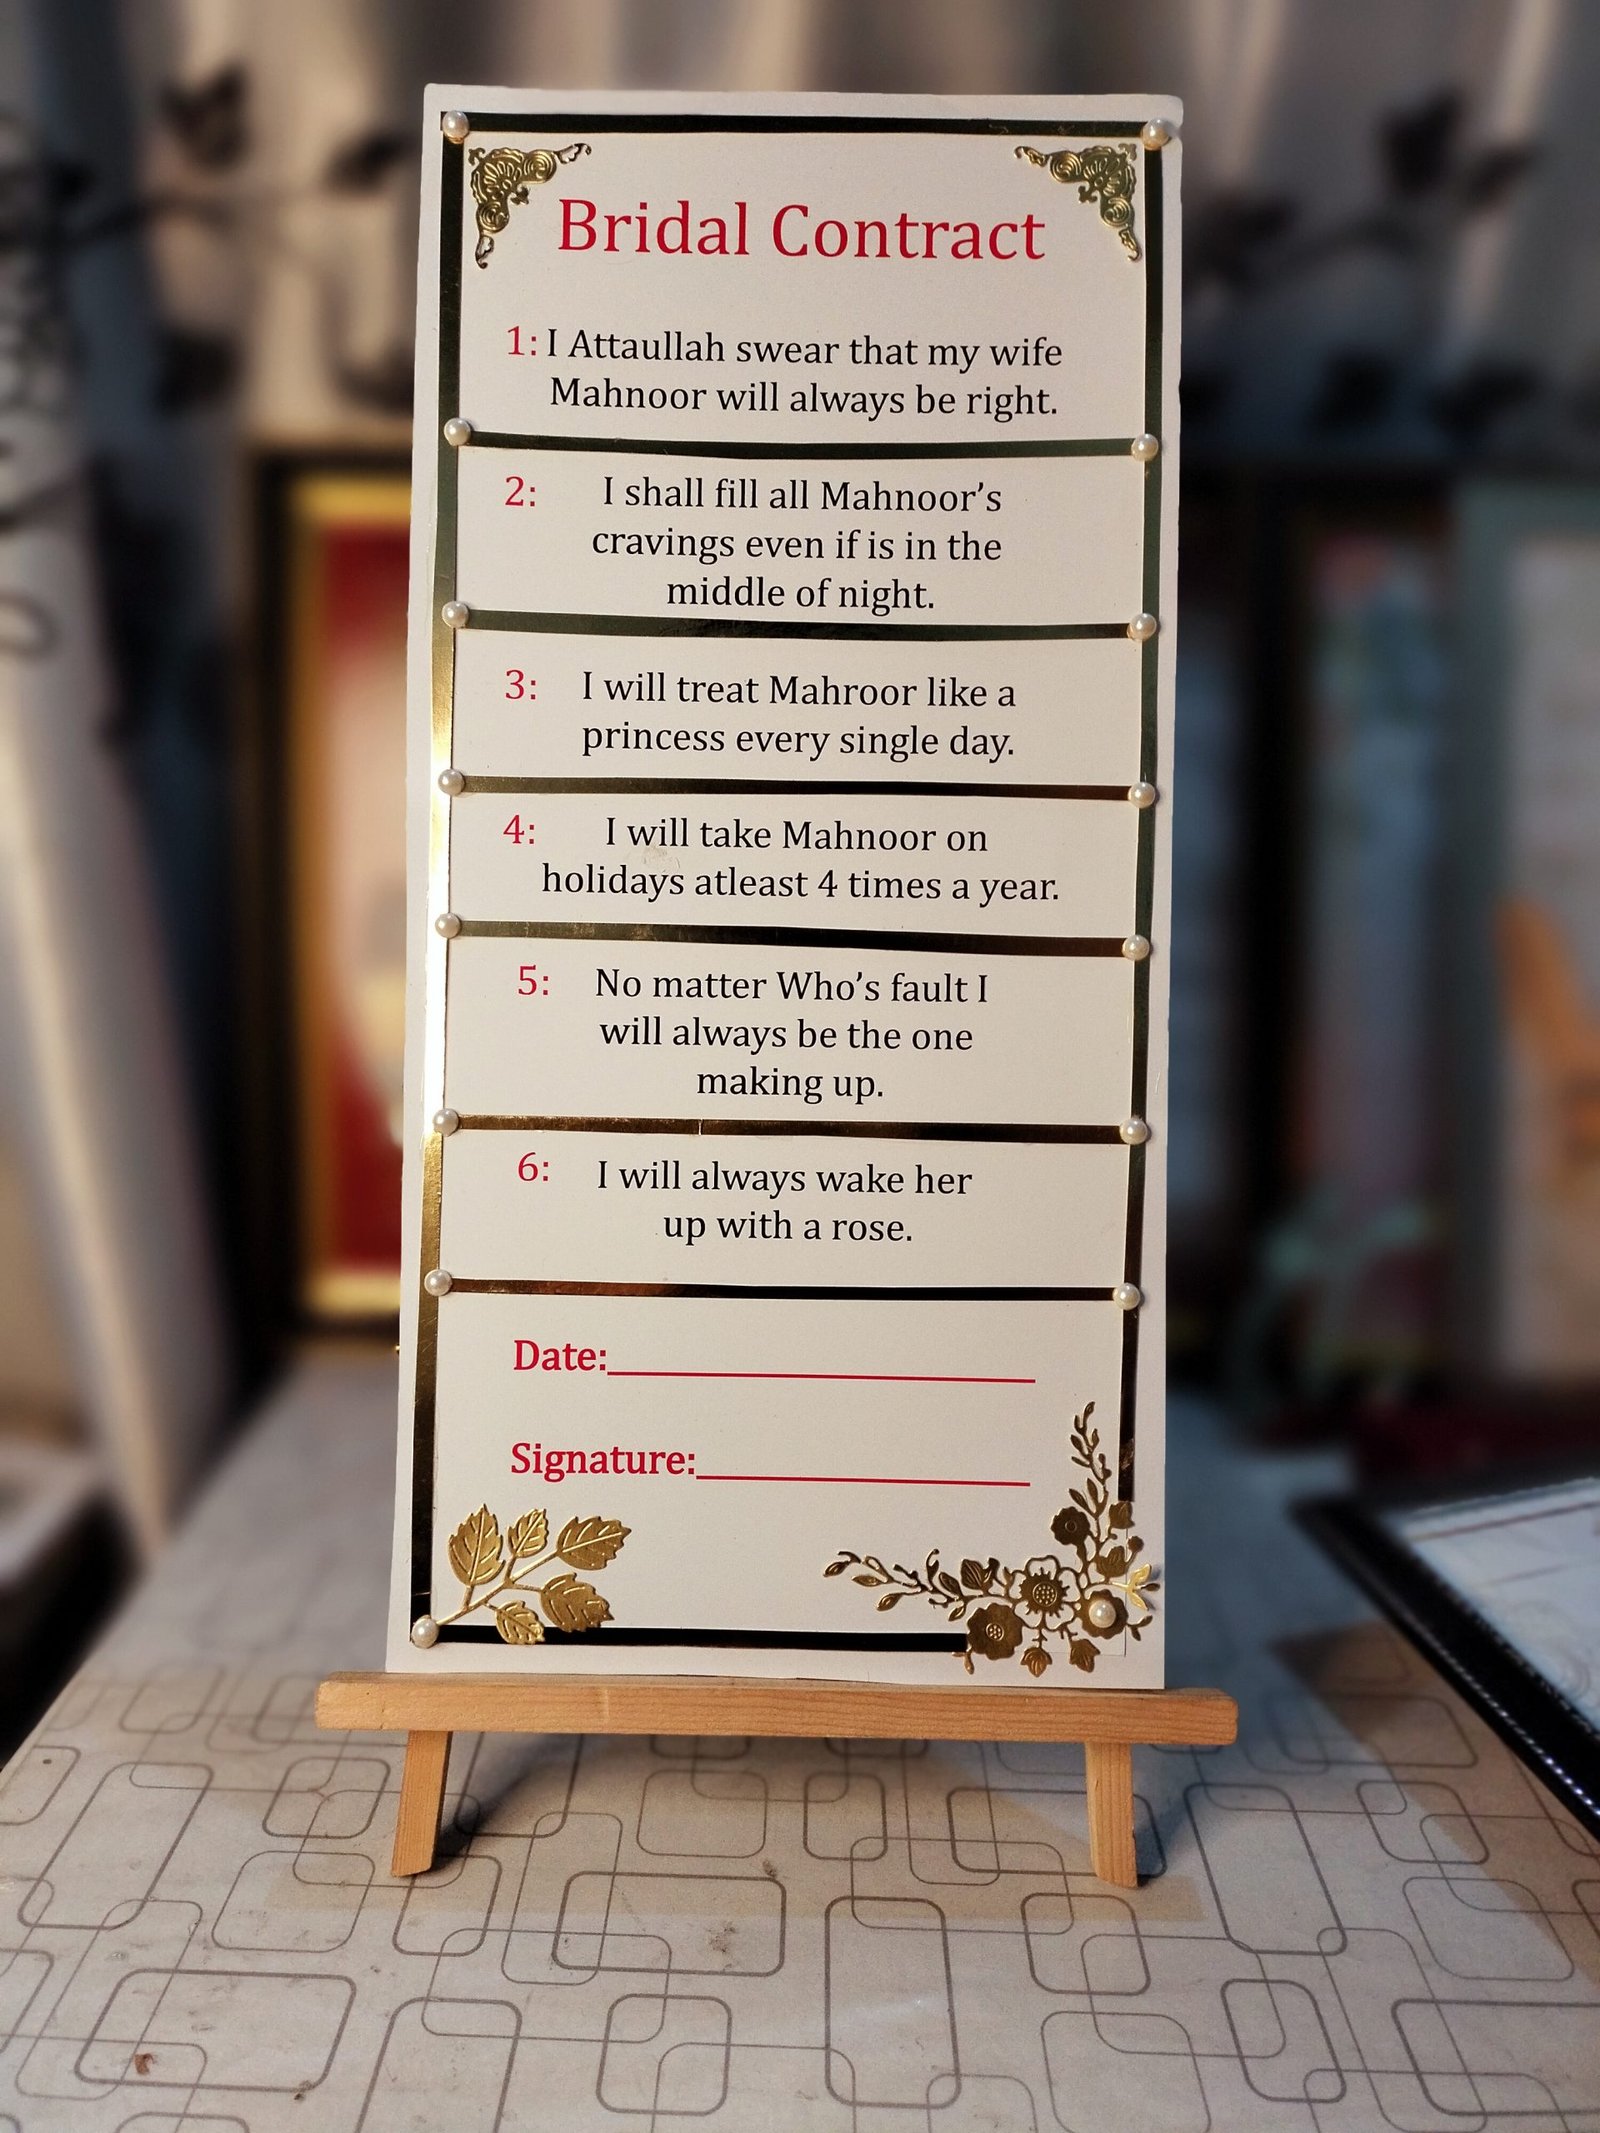 Bridal Contract
1: I Attaullah swear that my wife
Mahnoor will always be right.
2: I shall fill all Mahnoor’s
cravings even if is in the
middle of night.
3: I will treat Mahroor like a
princess every single day.
4: I will take Mahnoor on
holidays atleast 4 times a year.
5: No matter Who’s fault I
will always be the one
making up.
6: I will always wake her
up with a rose.
Date:
Signature: